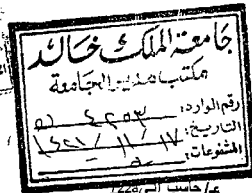 جامعة الملك خالد
مكتب مدير الجامعة
رقم الوارد: ٤٢٥٣
التاريخ: ١٤٢١/١١/١٧
المشفوعات: